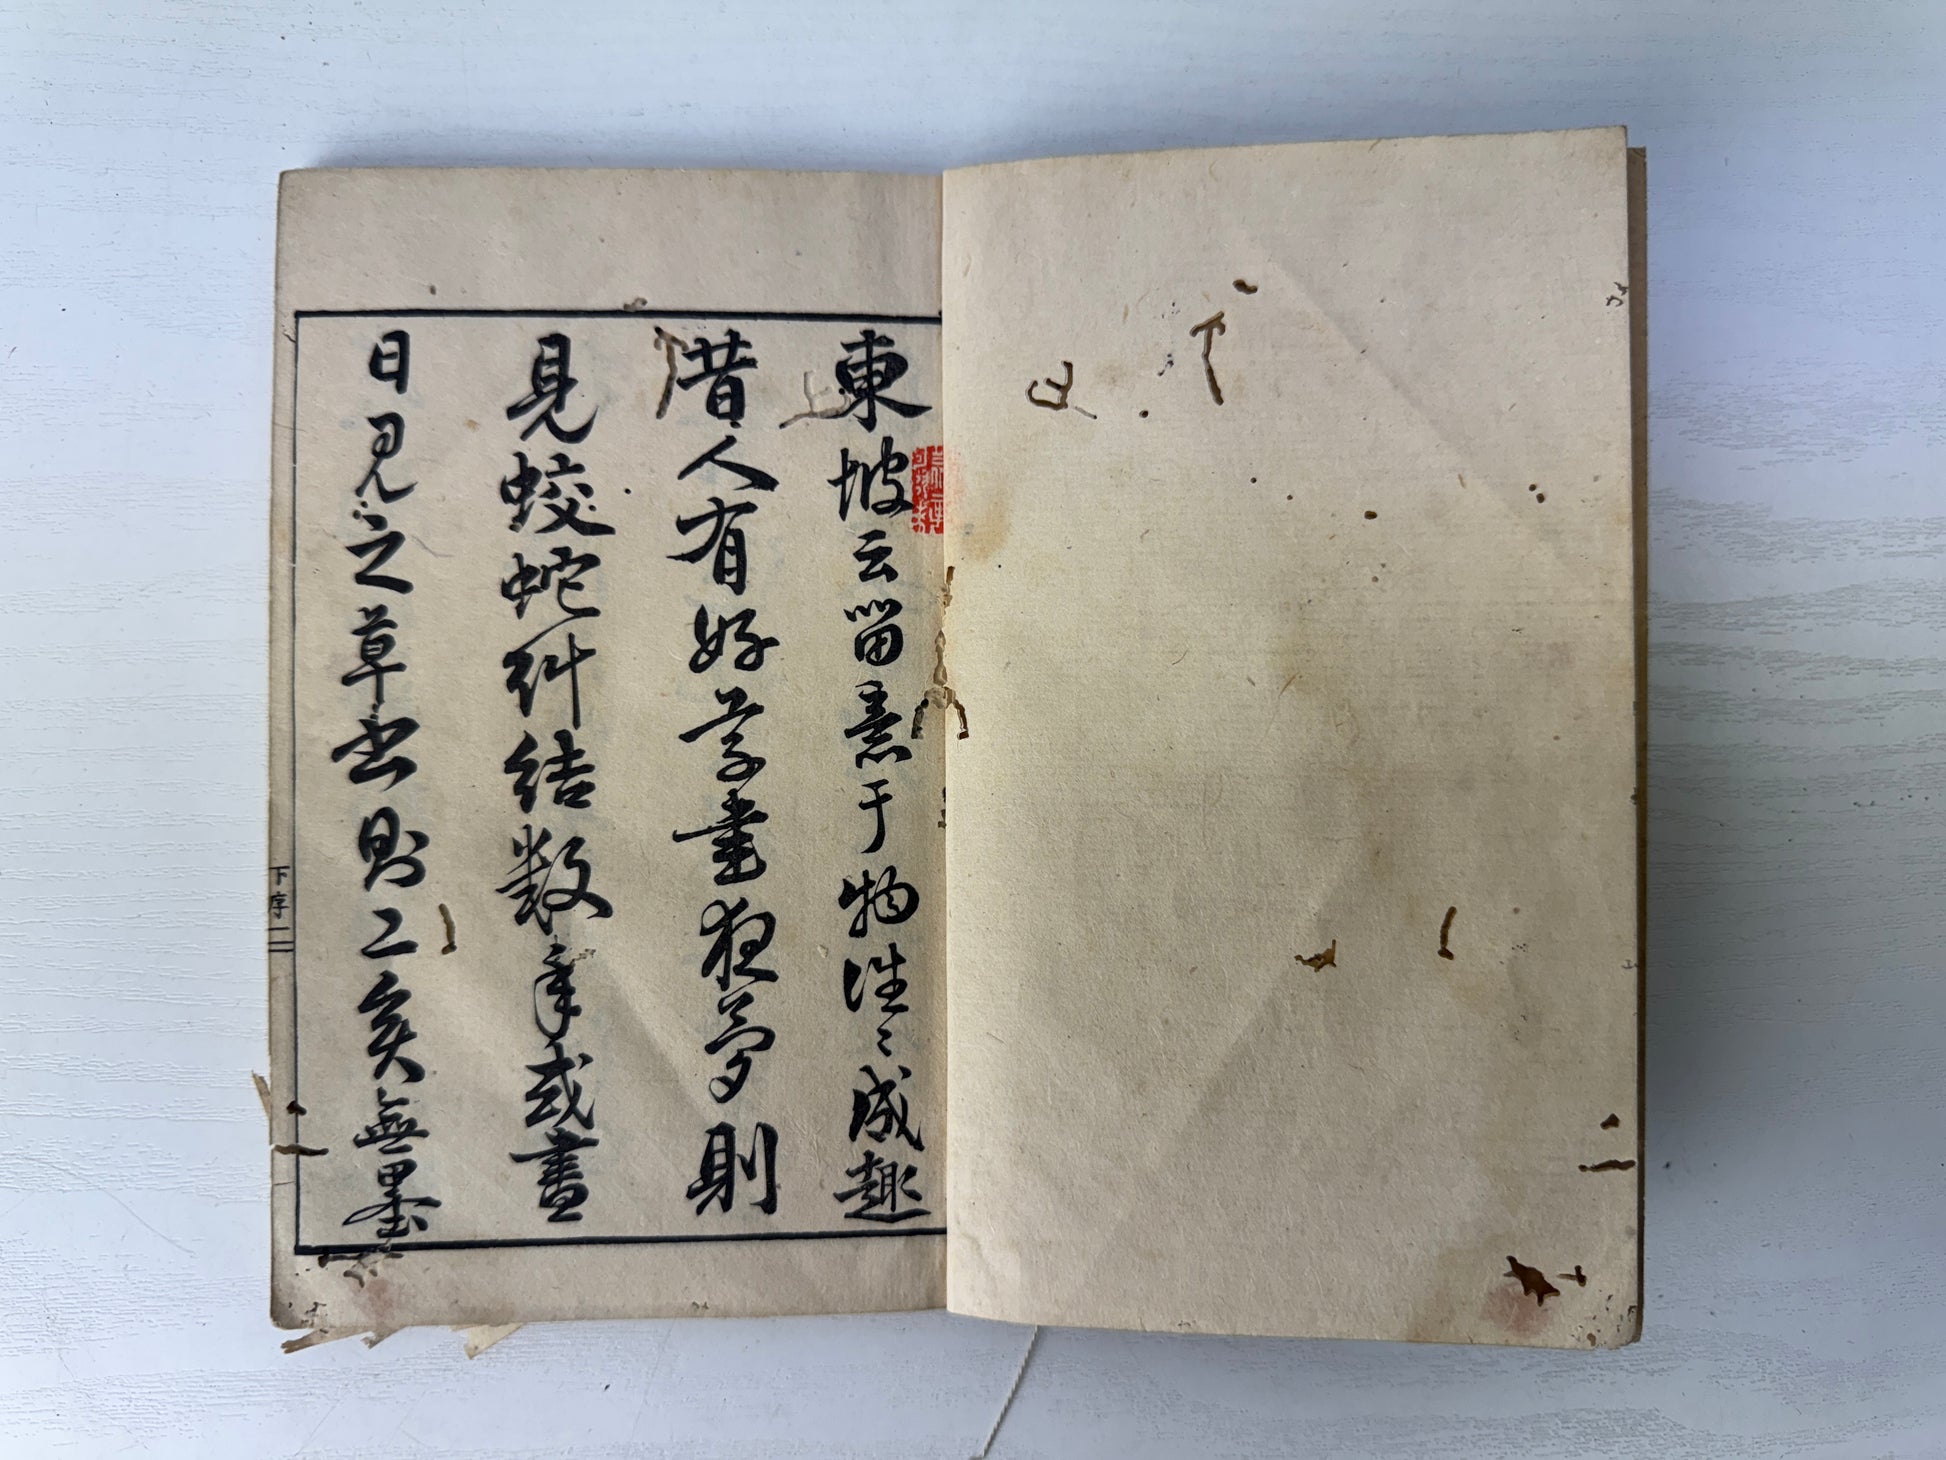 東坡云畱意于物往々成趣
昔人有好草書夜夢則
見蛟蛇糾結數年或晝
日見之草書則工矣無墨
下序一